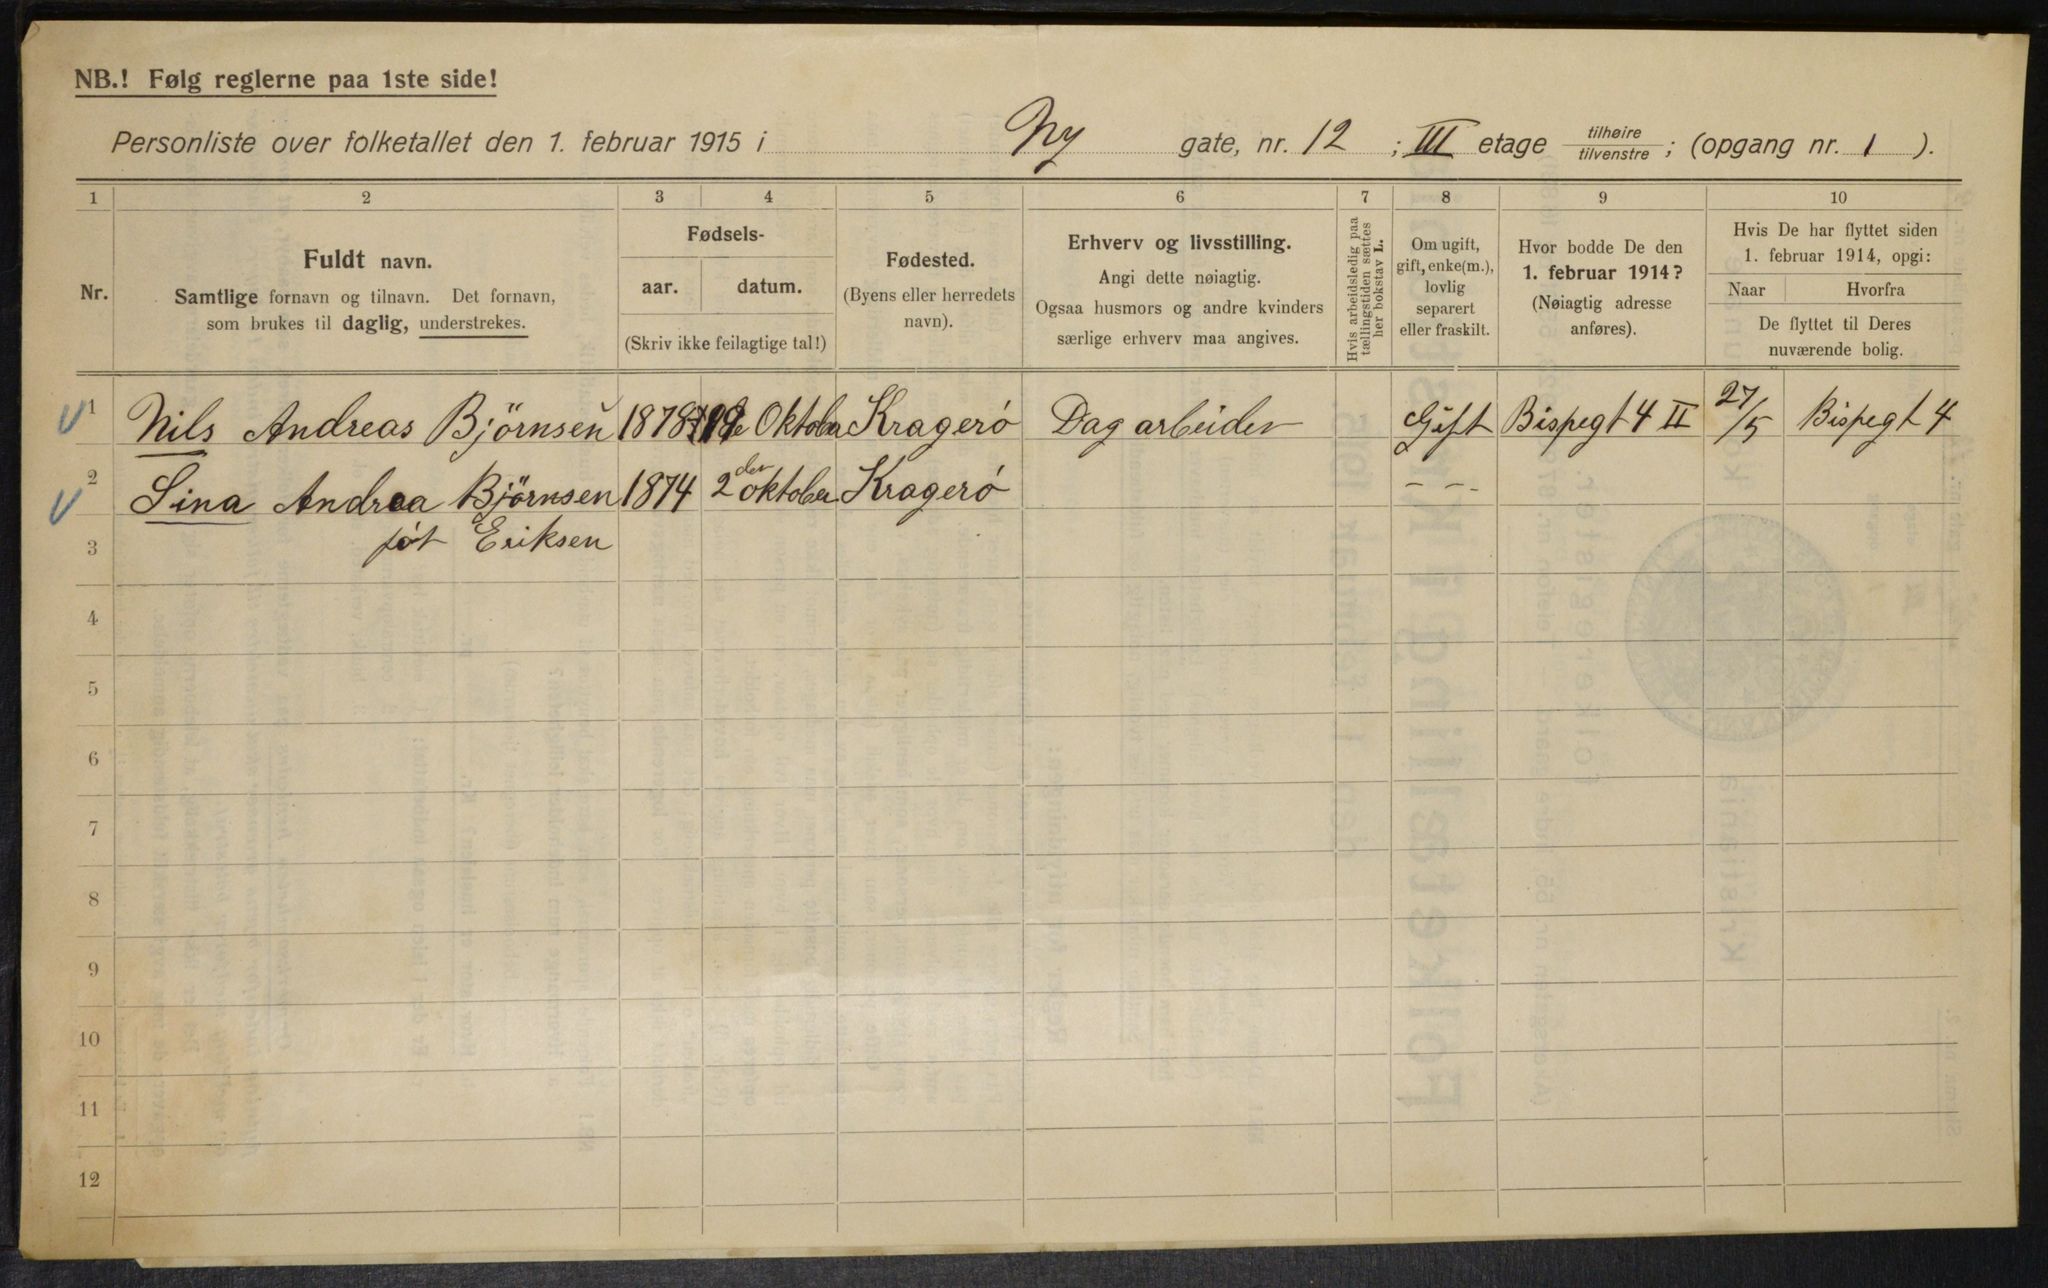 NB.! Følg reglerne paa 1ste side!
Personliste over folketallet den 1. februar 1915 i Ny gate, nr. 12 ; III etage tilhøire/tilvenstre ; (opgang nr. 1 ).
1 2 3 4 5 6 7 8 9 10
Nr.
Fuldt navn.
Samtlige fornavn og tilnavn. Det fornavn,
som brukes til daglig, understrekes.
Fødsels-
aar. datum.
(Skriv ikke feilagtige tal!)
Fødested.
(Byens eller herredets
navn).
Erhverv og livsstilling.
Angi dette nøiagtig.
Ogsaa husmors og andre kvinders
særlige erhverv maa angives.
Hvis arbeidsledig paa
tællingstiden sættes
her bokstav L.
Om ugift,
gift, enke(m.),
lovlig
separert
eller fraskilt.
Hvor bodde De den
1. februar 1914?
(Nøiagtig adresse
anføres).
Hvis De har flyttet siden
1. februar 1914, opgi:
Naar Hvorfra
De flyttet til Deres
nuværende bolig.
1 Nils Andreas Björnsen 1878 Oktober Kragerö Dagarbeider Gift Bispegt 4 II 27/5 Bispegt 4
2 Sina Andrea Björnsen 1874 2den oktober Kragerö - - -
3 föt Eriksen
4
5
6
7
8
9
10
11
12